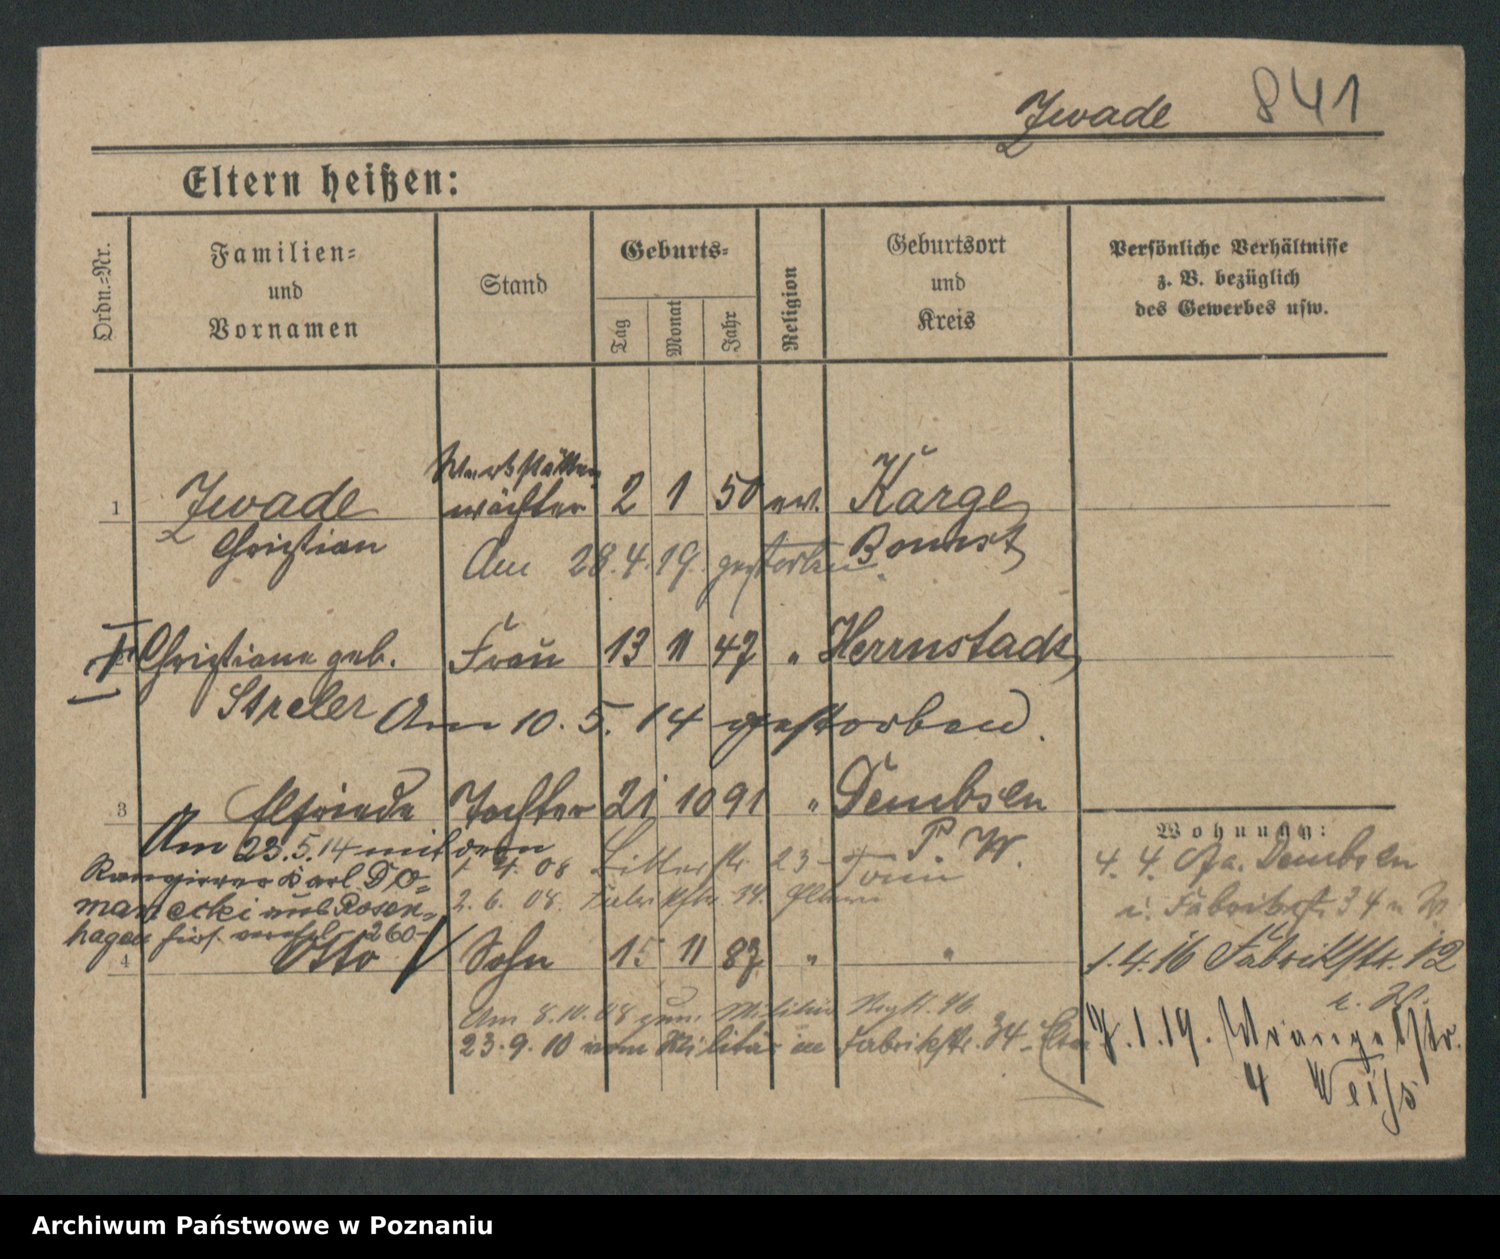 Zwade 841
Eltern heißen:
Ordn.-Nr.
Familien-
und
Vornamen
Stand
Geburts-
Tag
Monat
Jahr
Religion
Geburtsort
und
Kreis
Persönliche Verhältnisse
z. B. bezüglich
des Gewerbes usw.
Werkstätten
1 Zwade wächter 2 1 50 ev. Karge
Christian Bomst
Am 28.4.19. gestorben.
Christiane geb. Frau 13 11 47 " Herrnstadt
Streler Am 10. 5. 14 gestorben.
3 Elfriede Tochter 21 10 91 " Dembsen
P. W.
Am 23.5.14 mit dem
Rangierer Karl Do-
manecki aus Rosen-
hagen
4 Otto Sohn 15 11 87 " "
1. 4. 08 23
2. 6. 08. Fabrikstr. 34. Eltern
Am 8.10.08 zum Militär Regt. 46
23.9.10 vom Militär in Fabrikstr. 34 Eltern
Wohnung:
4. 4. Dembsen
Fabrikstr. 34
1.4.16 Fabrikstr. 12
7.1.19. Wrangelstr.
4 Weiss
Archiwum Państwowe w Poznaniu